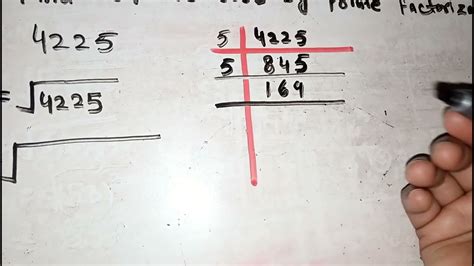 by Prime Factoriza
4225
= √4225
√
5 | 4225
5 | 845
169